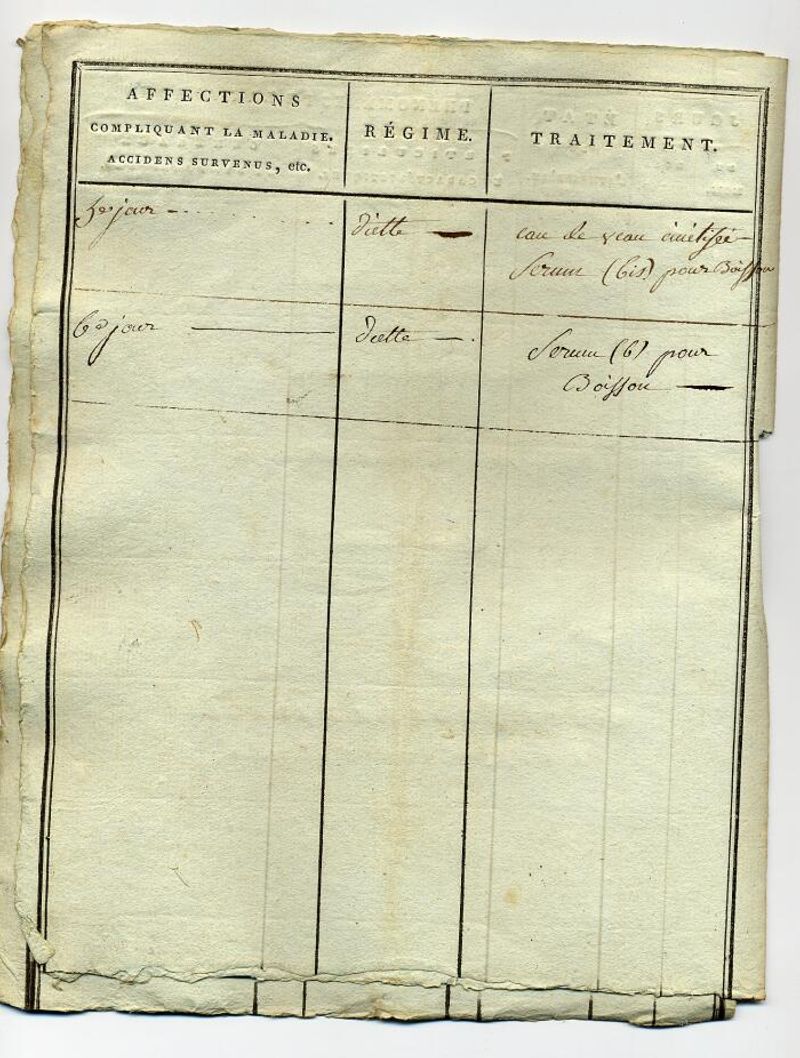 AFFECTIONS
COMPLIQUANT LA MALADIE.
ACCIDENS SURVENUS, etc.
RÉGIME.
TRAITEMENT.
5e jour
diette
eau de veau émétisée
Serum (bis) pour Boisson
6e jour
diette
Serum (6) pour
Boisson